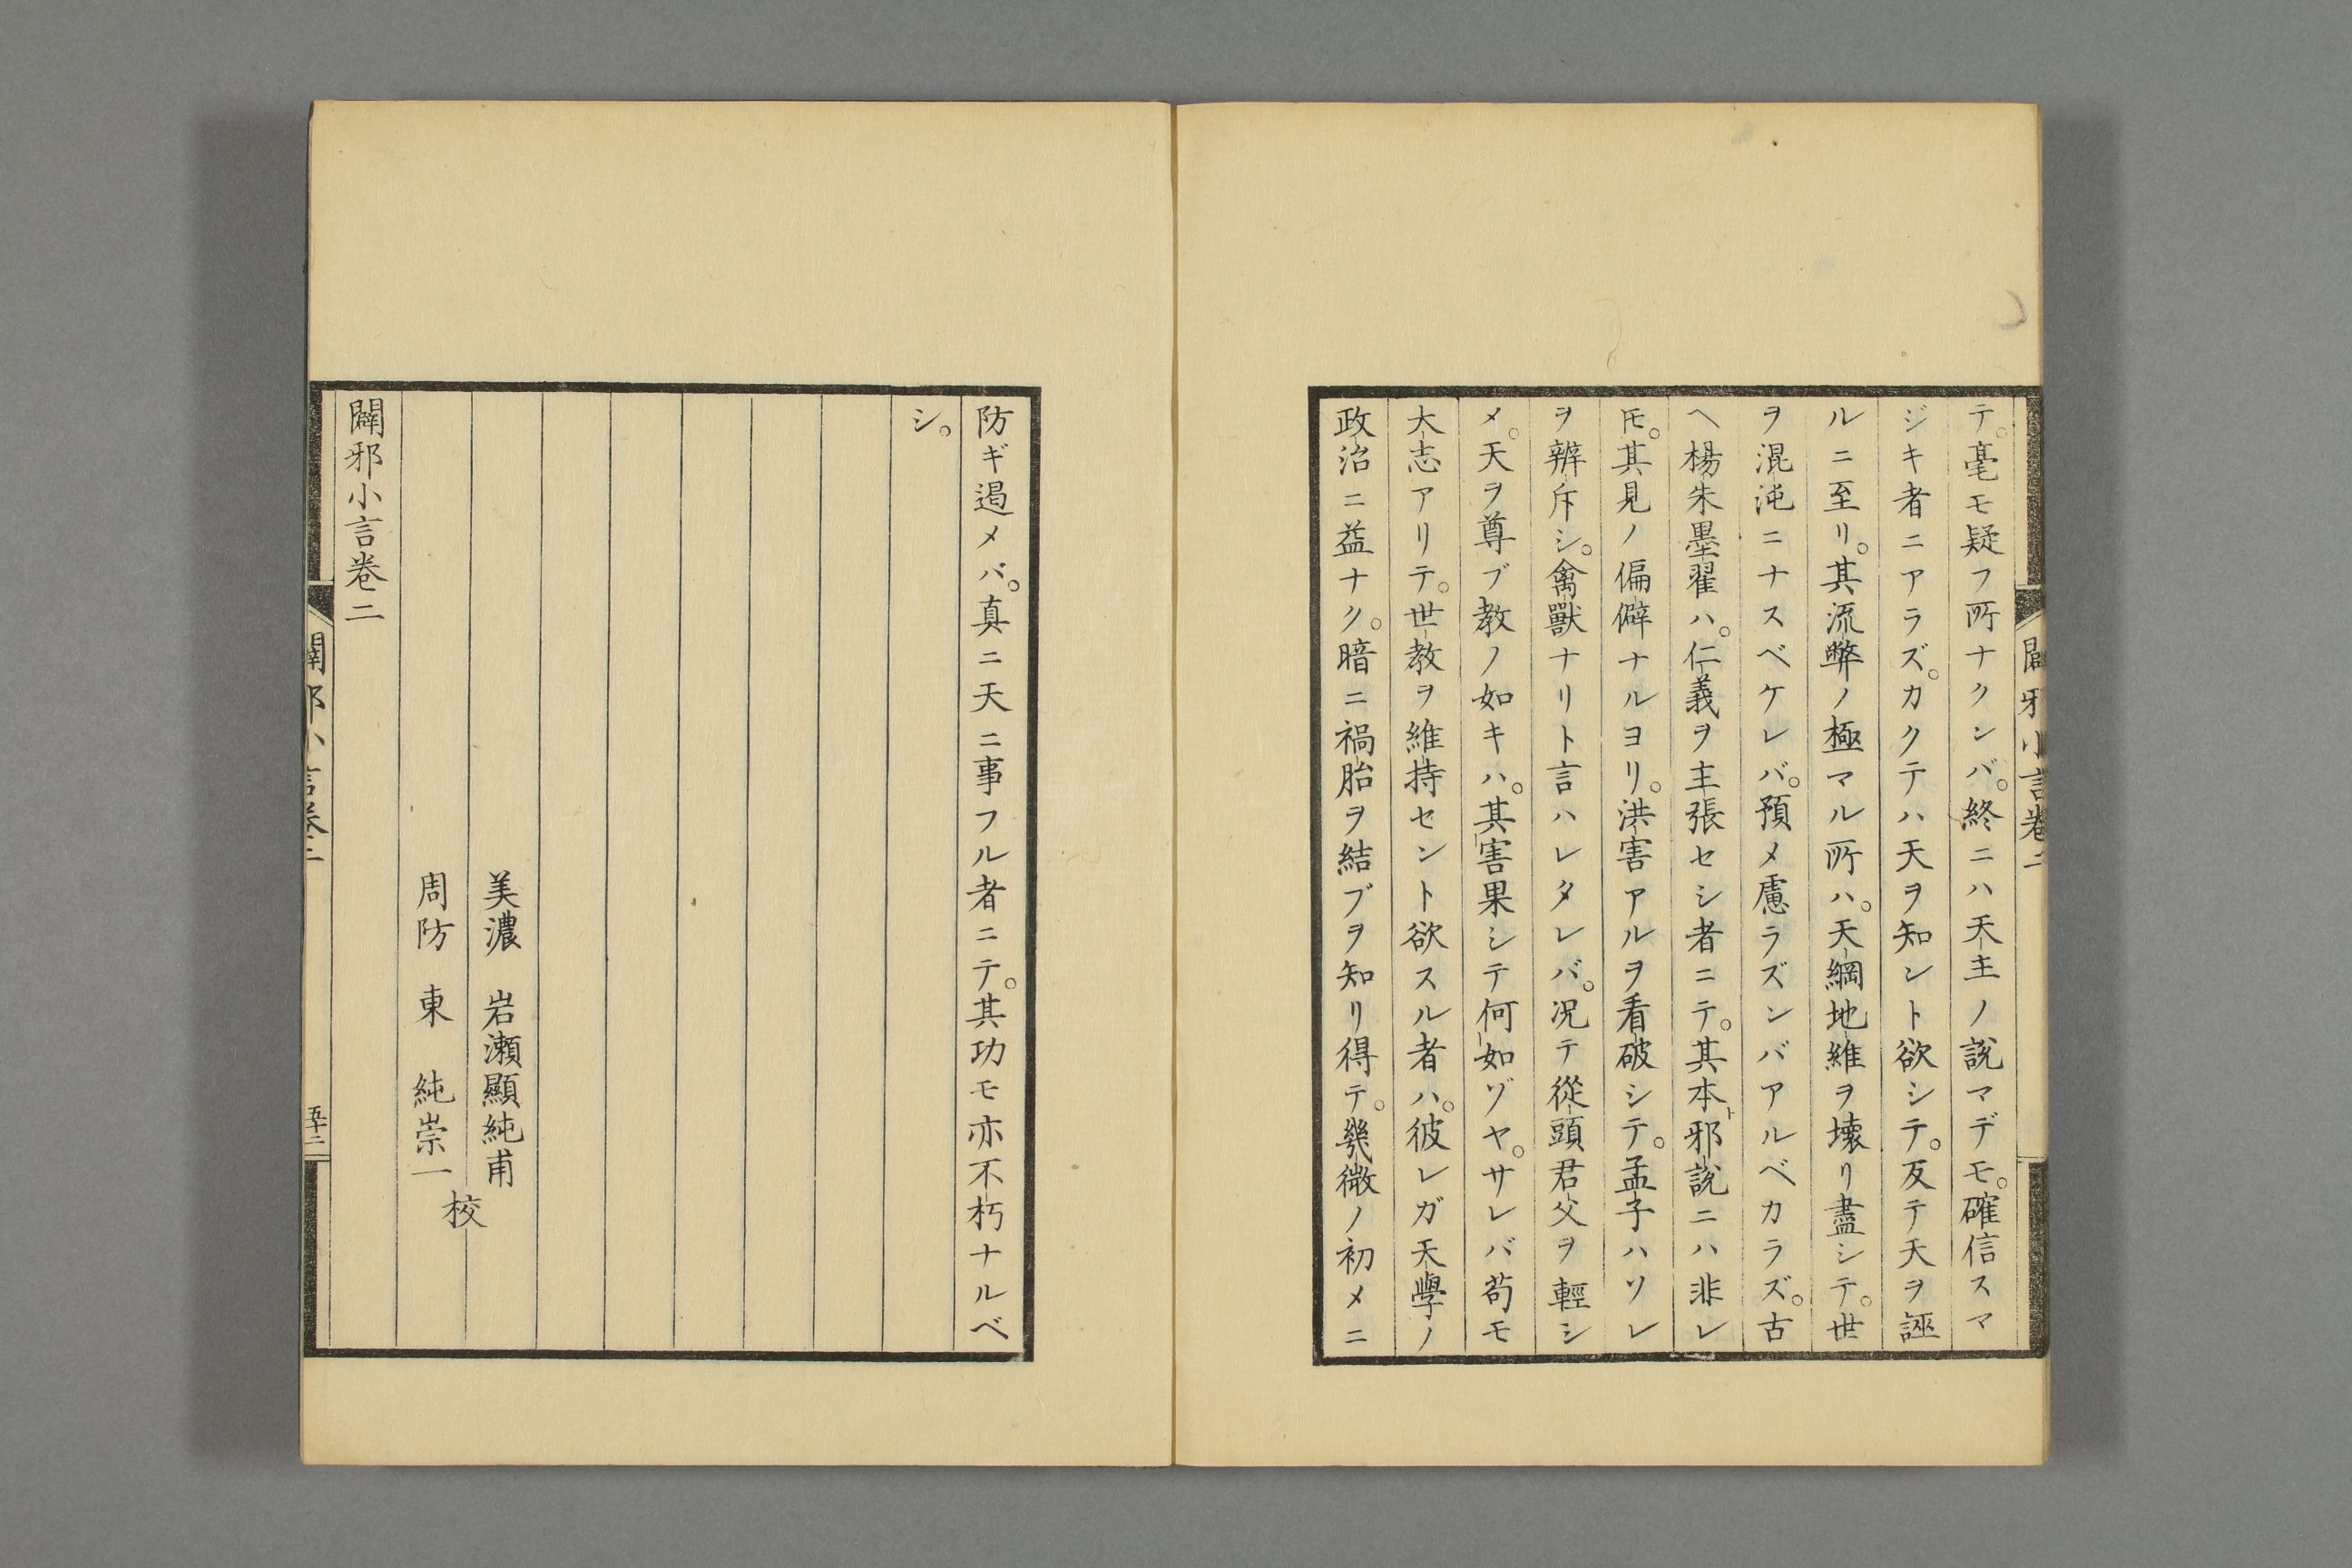 テ。毫モ疑フ所ナクンバ。終ニハ天主ノ說マデモ。確信スマ
ジキ者ニアラズ。カクテハ天ヲ知ント欲シテ。反テ天ヲ誣
ルニ至リ。其流弊ノ極マル所ハ。天綱地維ヲ壊リ盡シテ。世
ヲ混沌ニナスベケレバ。預メ慮ラズンバアルベカラズ。古
ヘ楊朱墨翟ハ。仁義ヲ主張セシ者ニテ。其本ト邪說ニハ非レ
𪜈。其見ノ偏僻ナルヨリ。洪害アルヲ看破シテ。孟子ハソレ
ヲ辨斥シ。禽獸ナリト言ハレタレバ。況テ從頭君父ヲ輕シ
メ。天ヲ尊ブ教ノ如キハ。其害果シテ何如ゾヤ。サレバ苟モ
大志アリテ。世教ヲ維持セント欲スル者ハ。彼レガ天學ノ
政治ニ益ナク。暗ニ禍胎ヲ結ブヲ知リ得テ。幾微ノ初メニ
闢邪小言卷二
防ギ遏メバ。真ニ天ニ事フル者ニテ。其功モ亦不朽ナルベ
シ。
美濃 岩瀬顯純甫
周防 東 純崇一
校
闢邪小言卷二
闢邪小言卷二
五十二